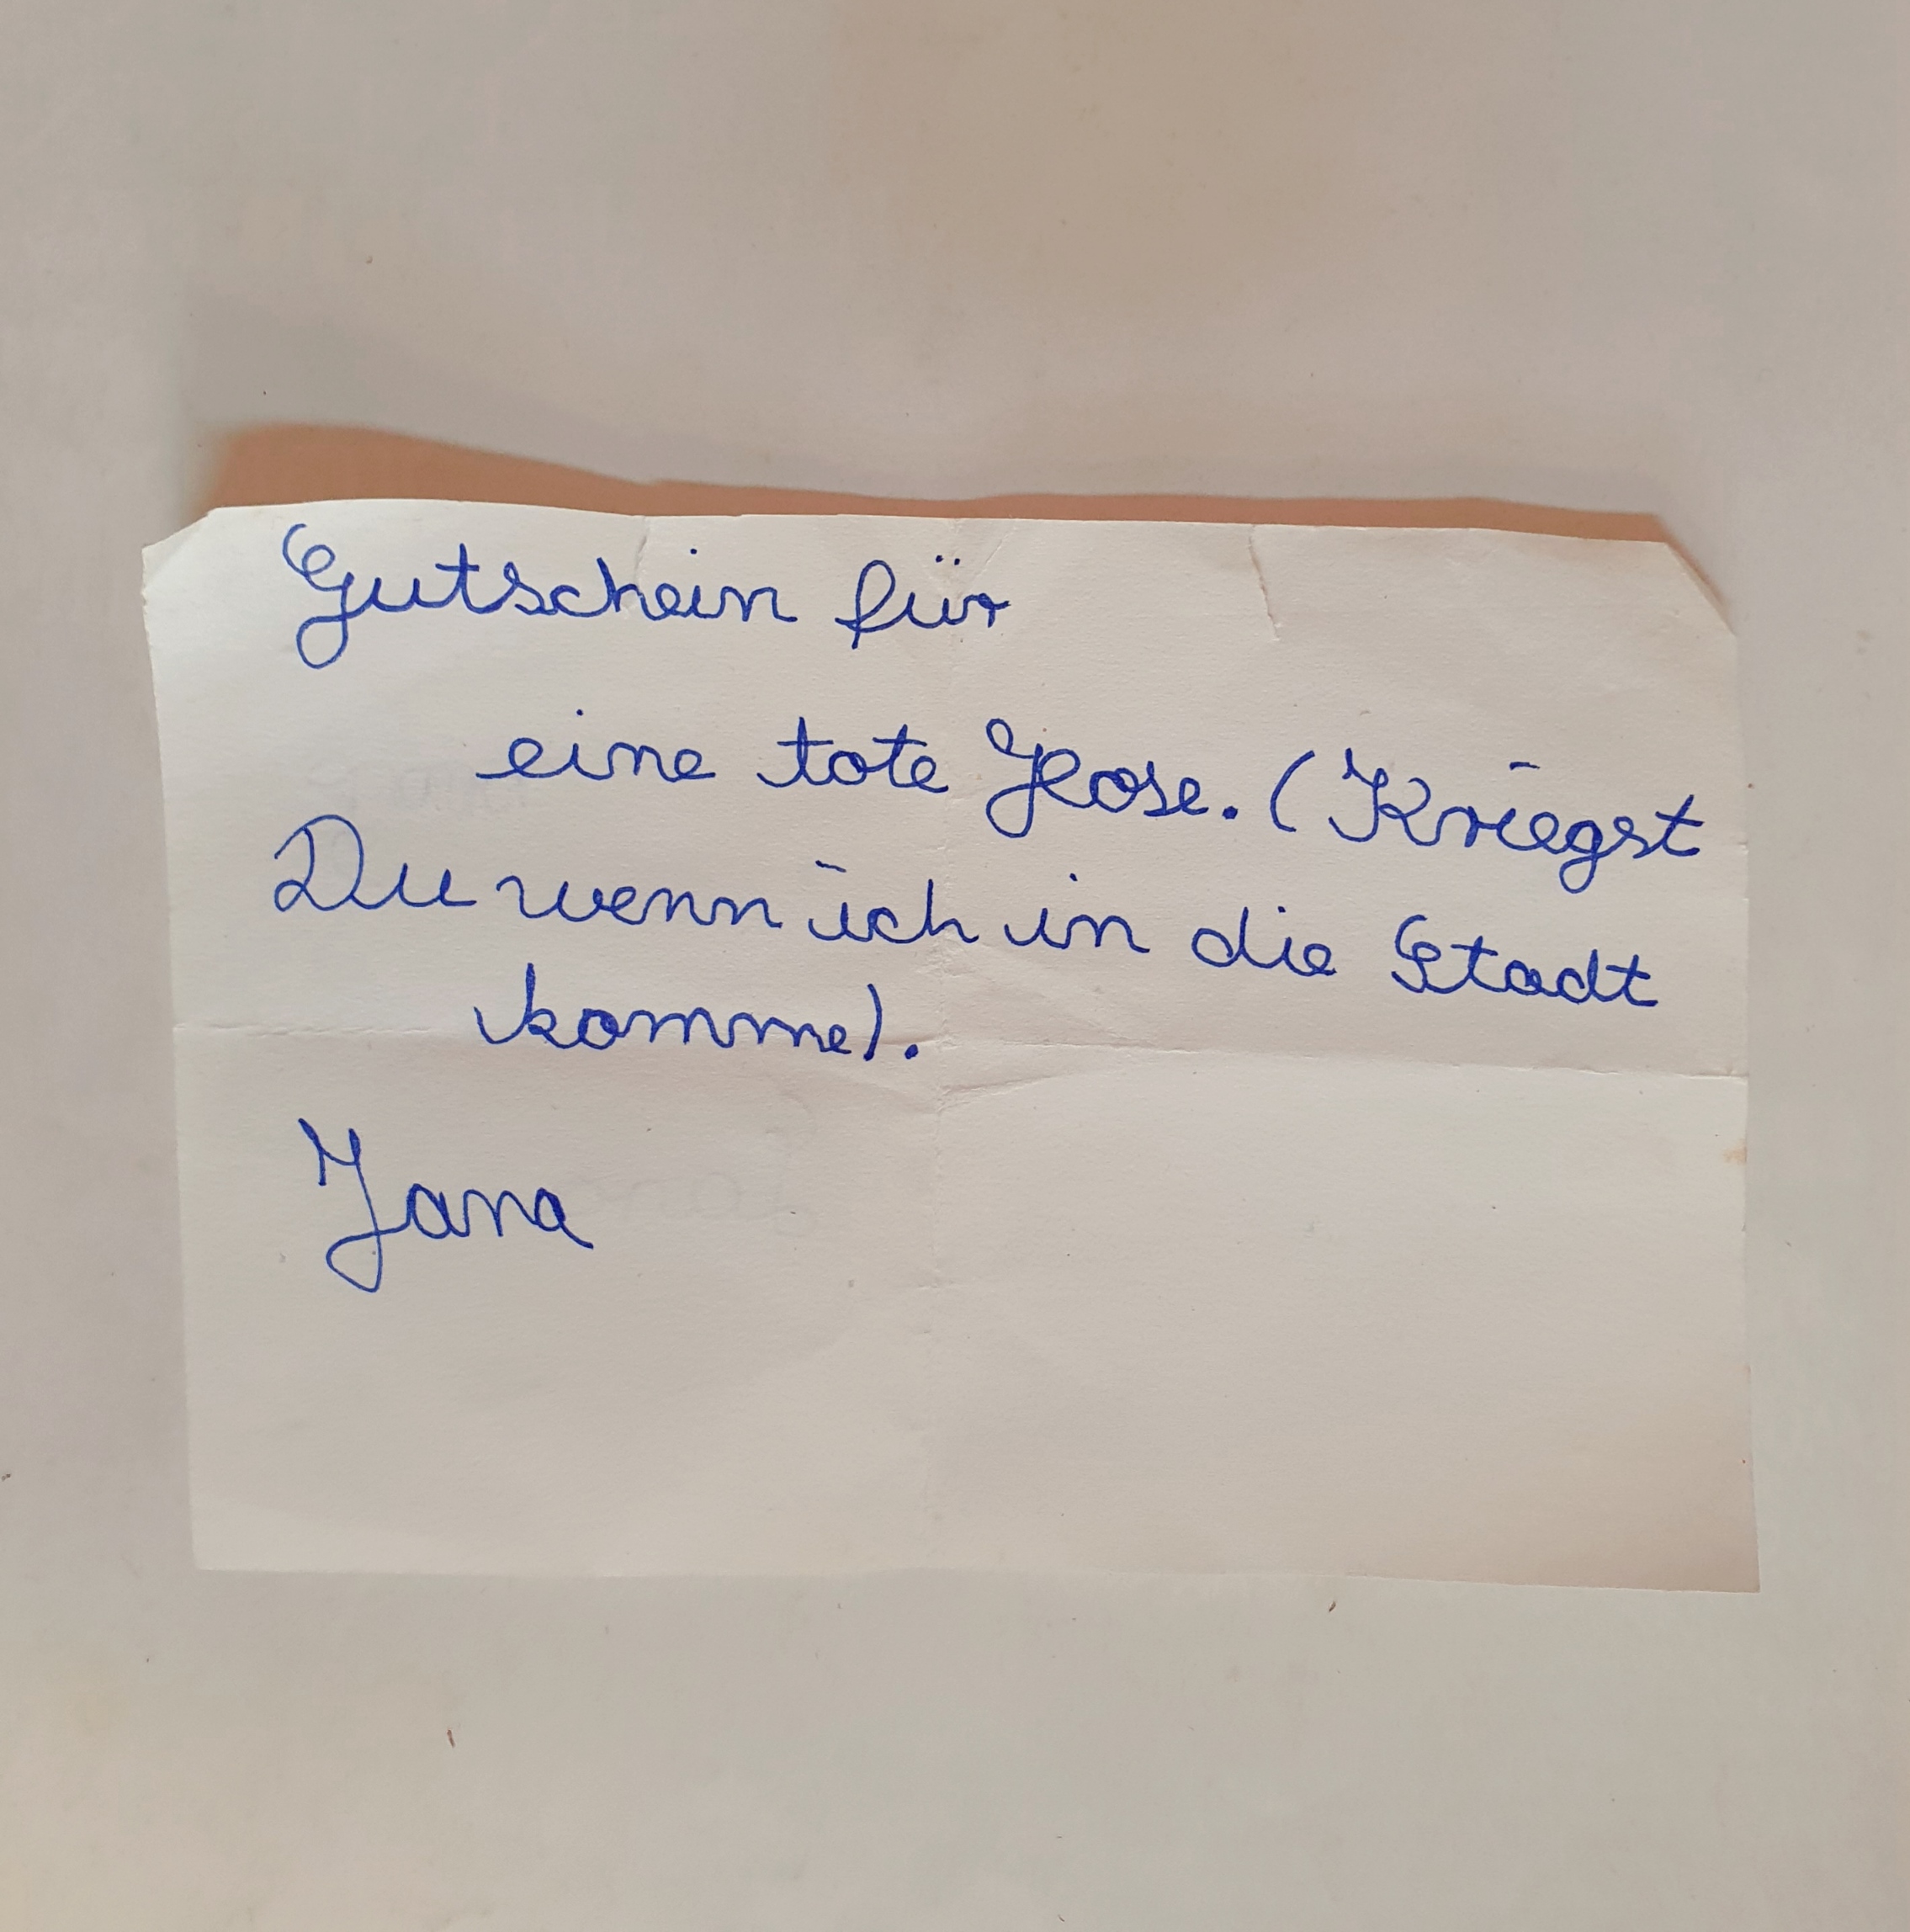 Gutschein für
eine tote Hose. (Kriegst
Du wenn ich in die Stadt
komme).
Jana